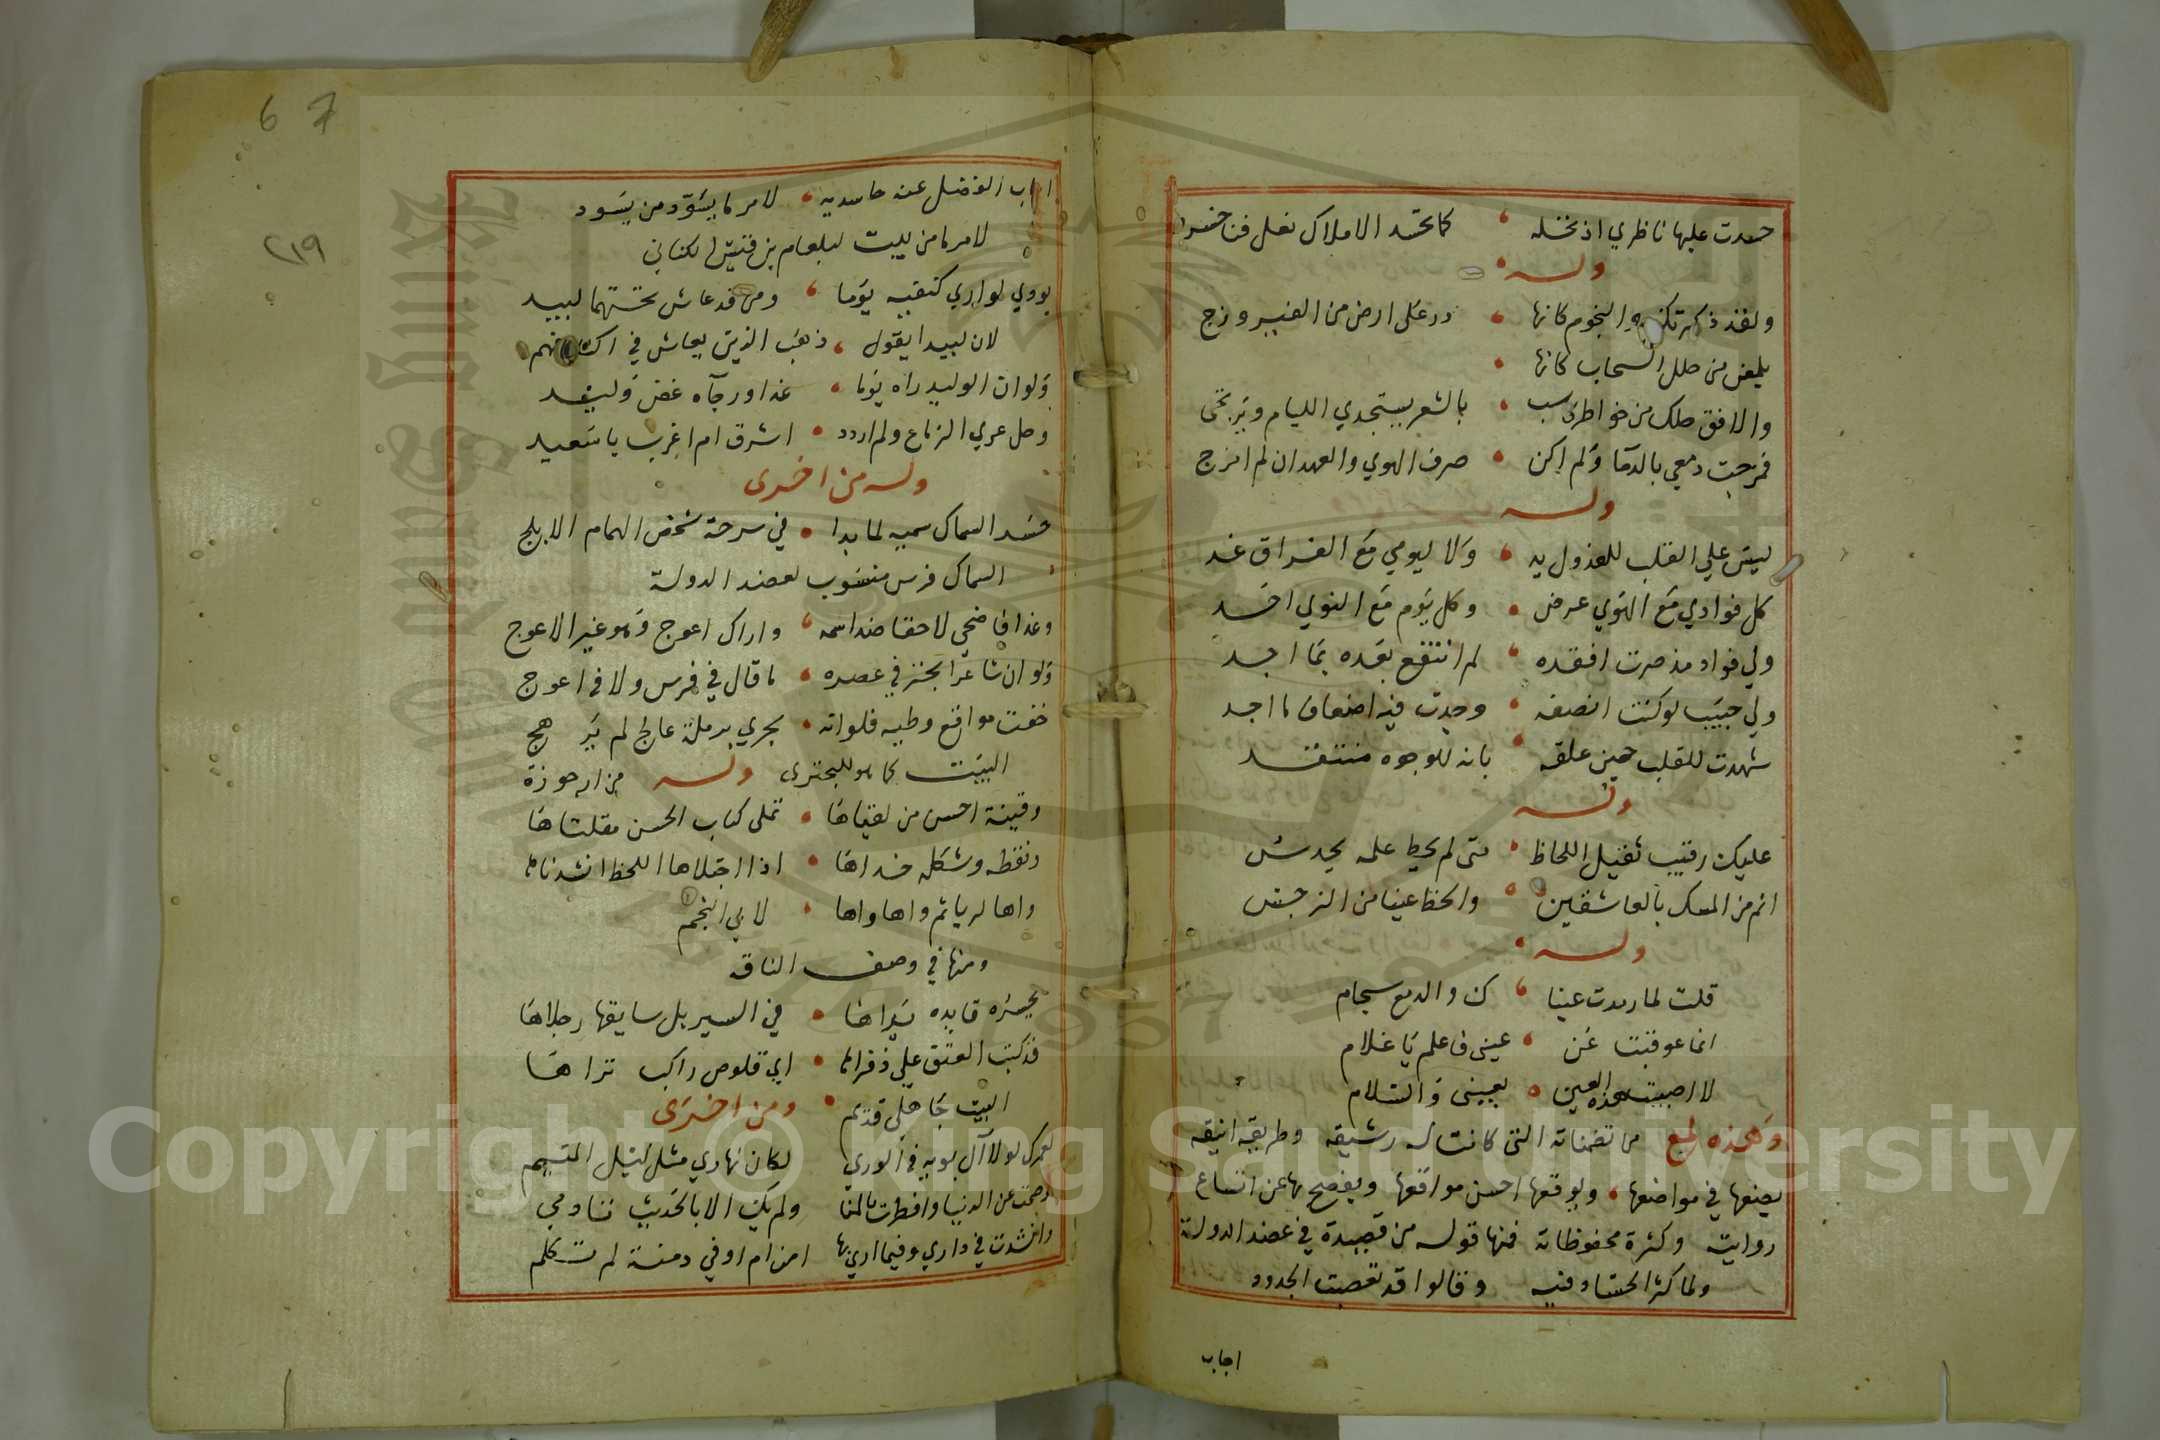 حسدت عليها ناظري اذ تخله كما تحسد الاملاك نعل فنا خسرو
وله
ولقد ذكرتك والنجوم كانها درر على ارض من الفيروزج
يلمعن من خلل السحاب كانها
والافق حلك من خواطر كسب بالشعر يستجدي الليام ويرتجى
فمزجت دمعي بالدما ولم اكن صرف الهوي والعهد ان لم امزج
وله
ليس علي القلب للعذول يد ولا ليومي مع الفراق غد
كل فوادي مع الهوي عرض وكل يوم مع النوي احد
ولي فواد مذ صرت افقده لم انتفع بعده بما اجد
ولي حبيب لو كنت انصفه وجدت فيه اضعاف ما اجد
شهدت للقلب حين علقه بانه للوجوه منتقد
وله
عليك رقيب ثقيل اللحاظ متى لم يحط علمه يحدس
انم من المسك بالعاشقين والحظ عينا من النرجس
وله
قلت لما رمدت عينا ك والدمع سجام
انما عوقبت عن عينى فاعلم يا غلام
لا اصيبت هذه العين بعيني والسلام
وهذه لمع من تضمناته التى كانت له رشيقه وطريقه انيقه
يصنعها في مواضعها ويوقعها احسن مواقعها ويفصح بها عن اتساع
روايته وكثرة محفوظاته فمنها قوله من قصيدة في عضد الدولة
ولما كثر الحساد فيه وقالوا قد تعصبت الجدود
اجاب
6 7
٢١٩
اجاب الفضل عنه حاسديه لامر ما يسود من يسود
لامر ما من بيت لبلعام بن قيس الكناني
يودي لو اري كنفيه يوما ومن قد عاش تحتهما لبيد
لان لبيدا يقول ذهب الذين يعاش في اكنافهم
ولو ان الوليد راه يوما غدا ورجاه غض وليد
وحل عري الزماع ولم اردد اشرق ام اغرب يا سعيد
وله من اخرى
حسد السماك سميه لما بدا في سرحة شخص الهمام الابلج
السماك فرس منسوب لعضد الدولة
وغدا فاضحي لاحقا ضد اسمه واراك اعوج وهو غير الاعوج
ولو ان شاعرا بحتر في عصره ما قال في فرس ولا في اعوج
خفت مواقع وطيه فلو انه يجري برملة عالج لم يرهج
البيت كما هو للبحترى وله من ارجوزة
وقينة احسن من لقياها تملى كتاب الحسن مقلتاها
نقطه وشكله خداها اذا اجتلاها اللحظ انشدناها
واها لريا ثم واها واها لابي النجم
ومنها في وصف الناقه
بجسره قايده يراها في السير بل سايقها رجلاها
قد كتب العتق علي ذفراها اي قلوص راكب تراها
البيت جاهلي قديم ومن اخرى
لعمرك لولا آل بويه في الوري لكان نهاري مثل ليل المتيم
وصمت عن الدنيا وافطرت بالمنا ولم يك الا بالحديث تنادمي
وانشدت في داري وفيما اري بها امن ام اوفي دمنة لم تكلم
Copyright © King Saud University
King Saud University
1957